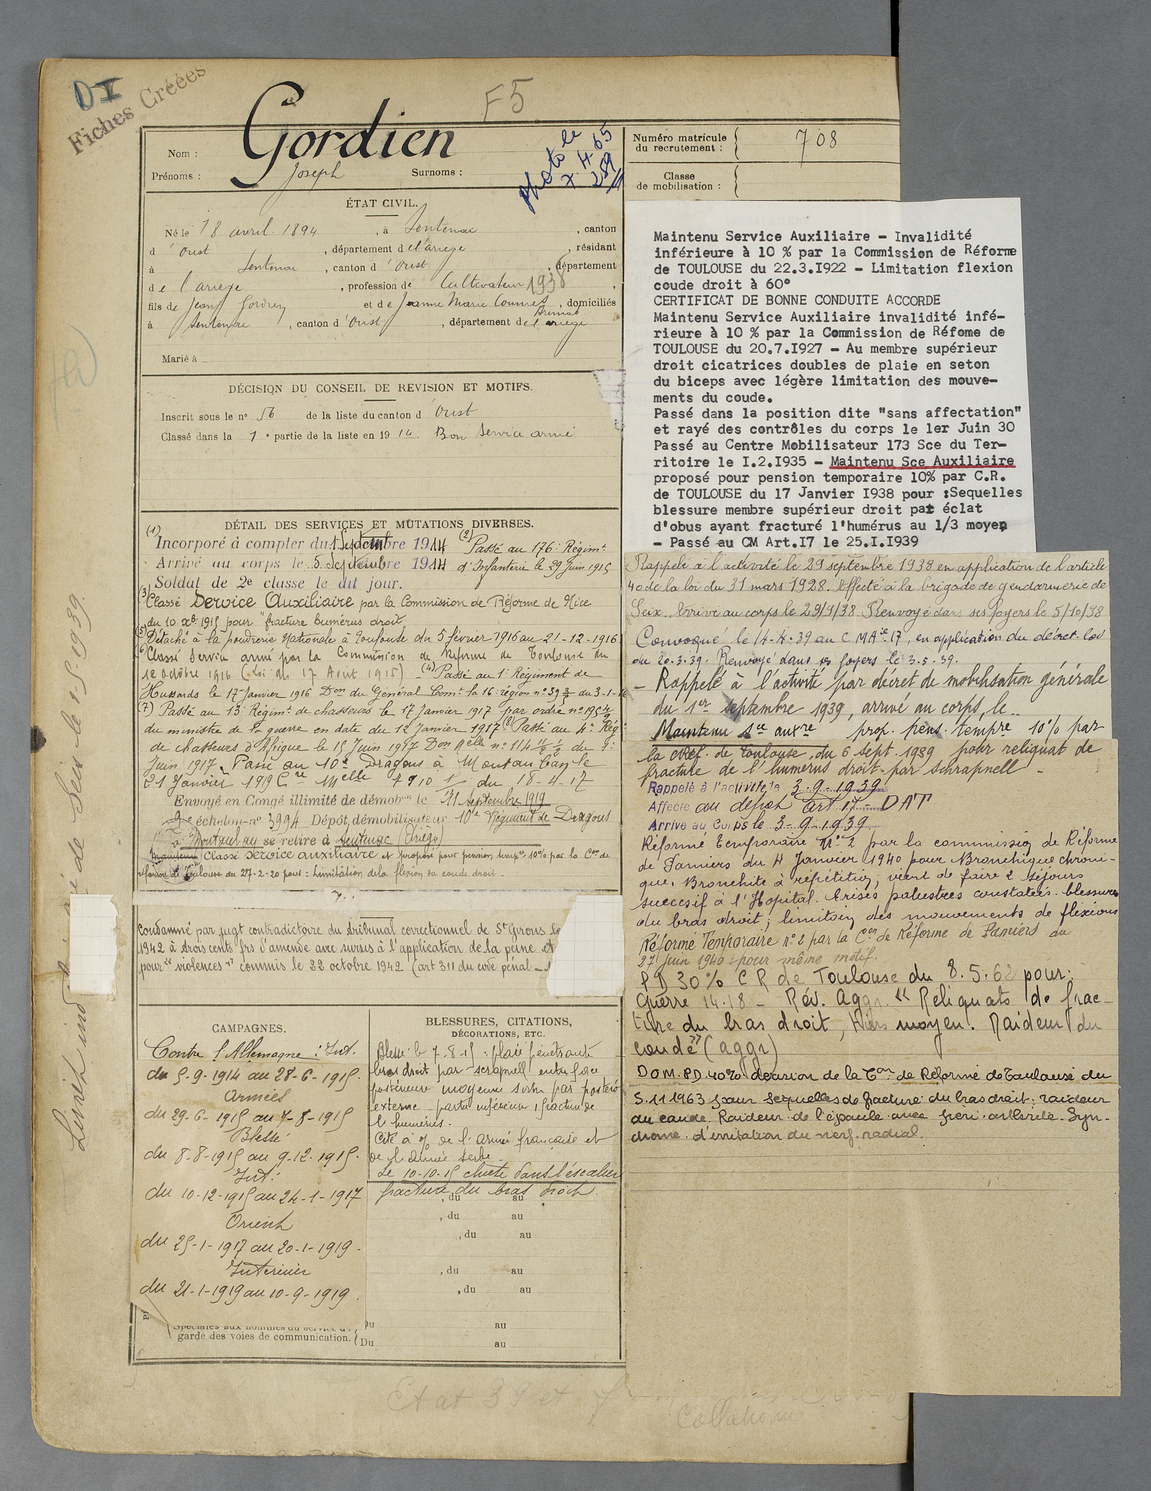 DI
Fiches Créées
F5
Nom : Gordien
Prénoms : Joseph Surnoms :
photo le
Numéro matricule du recrutement : 708
Classe de mobilisation :
ÉTAT CIVIL.
Né le 18 avril 1894, à Sentenac, canton
d'Oust, département de l'ariège, résidant
à Sentenac, canton d'Oust, département
de l'ariège, profession de Cultivateur 1938
fils de Jean Gordien et de Jeanne Marie, domiciliés
à Sentenac, canton d'Oust, département de l'ariège
Marié à
DÉCISION DU CONSEIL DE REVISION ET MOTIFS.
Inscrit sous le n° 56 de la liste du canton d'Oust
Classé dans la 1e partie de la liste en 1914 Bon Service armé
DÉTAIL DES SERVICES ET MUTATIONS DIVERSES.
(1) Incorporé à compter du 1 Septembre 1914 (2) Passé au 176e Régimt
Arrivé au corps le 5 Septembre 1914 d'Infanterie le 29 juin 1915
Soldat de 2e classe le dit jour.
(3) Classé Service Auxiliaire par la Commission de Réforme de Nice
du 10 1915 pour "fracture humérus droit"
(5) Détaché à la poudrerie Nationale à Toulouse du 5 février 1916 au 21-12-1916
Classé Service armé par la Commission de Réforme de Toulouse du
octobre 1916 (Loi du 17 Août 1915) (4) Passé au 1er Régiment de
Houzards le 17 janvier 1916 Don du Général Commt la 16e région n° 39 du 3-1-16
(7) Passé au 13e Régimt de chasseurs le 17 janvier 1917 par ordre n°
du ministre de la guerre en date du 12 janvier 1917 (8) Passé au 4e Rég
de chasseurs d'Afrique le 15 juin 1917 Don Melle n° 114 du
juin 1917. Passé au 10e Dragons à Montauban le
21 janvier 1919 Melle 4910 du 18-4-17
Envoyé en Congé illimité de démobon le 11 septembre 1919
échelon n° 3994 Dépôt démobilisateur 10e Régiment de Dragons
à Montauban se retire à Sentenac (Ariège)
Maintenu Classé service auxiliaire et proposé pour pension tempre 10% par la Con de
réforme de Toulouse du 27-2-20 pour : Limitation de la flexion du coude droit.
Condamné par jugt contradictoire du tribunal correctionnel de St Girons le
1942 à trois cents frs d'amende avec sursis à l'application de la peine et
pour "violences" commis le 22 octobre 1942 (art 311 du code pénal
CAMPAGNES.
Contre l'Allemagne : Int.
du 5-9-1914 au 28-6-1915.
Armées
du 29-6-1915 au 7-8-1915
Blessé
du 8-8-1915 au 9-12-1915.
Int.
du 10-12-1915 au 24-1-1917
Orient
du 25-1-1917 au 20-1-1919.
Intérieur
du 21-1-1919 au 10-9-1919.
Spéciales aux hommes du service de
garde des voies de communication.
Du au
Du au
BLESSURES, CITATIONS,
DÉCORATIONS, ETC.
Blessé le 7-8-15 : plaie pénétrante
bras droit par schrapnell entrée face
postérieure moyenne sortie par postéro
externe partie inférieure fracture de
l'humérus.
Cité à de l'armée française et
de l'Armée Serbe
Le 10-10-15 chute dans l'escalier
fracture du bras droit
, du au
, du au
, du au
, du au
, du au
Maintenu Service Auxiliaire - Invalidité
inférieure à 10 % par la Commission de Réforme
de TOULOUSE du 22.3.I922 - Limitation flexion
coude droit à 60°
CERTIFICAT DE BONNE CONDUITE ACCORDE
Maintenu Service Auxiliaire invalidité infé-
rieure à 10 % par la Commission de Réfome de
TOULOUSE du 20.7.I927 - Au membre supérieur
droit cicatrices doubles de plaie en seton
du biceps avec légère limitation des mouve-
ments du coude.
Passé dans la position dite "sans affectation"
et rayé des contrôles du corps le 1er Juin 30
Passé au Centre Mobilisateur 173 Sce du Ter-
ritoire le I.2.I935 - Maintenu Sce Auxiliaire
proposé pour pension temporaire 10% par C.R.
de TOULOUSE du 17 Janvier I938 pour :Sequelles
blessure membre supérieur droit par éclat
d'obus ayant fracturé l'humérus au 1/3 moyen
- Passé au CM Art.I7 le 25.I.I939
Rappelé à l'activité le 29 septembre 1938 en application de l'article
40 de la loi du 31 mars 1928. Affecté à la brigade de gendarmerie de
Seix. Arrivé au corps le 29/9/38. Renvoyé dans ses foyers le 5/10/38
Convoqué le 14-4-39 au C M Ase 17, en application du décret-loi
du 20-3-39. Renvoyé dans ses foyers le 3-5-39.
- Rappelé à l'activité par décret de mobilisation générale
du 1er septembre 1939, arrivé au corps, le..
Maintenu Sce auxre prop. pens. tempre 10% par
la C. Réf. de Toulouse du 6 sept. 1939 pour reliquat de
fracture de l'humérus droit par schrapnell -
Rappelé à l'activité le 3-9-1939
Affecté au dépôt art 17 DAT
Arrivé au Corps le 3-9-1939
Réformé Temporaire N° 2 par la commission de Réforme
de Pamiers du 4 Janvier 1940 pour Bronchique chroni-
que. Bronchite à répétition, vient de faire 2 séjours
successif à l'Hopital. Crises palustres constatées. blessure
du bras droit, limiton des mouvements de flexions
Réformé Temporaire n° 2 par la Con de Réforme de Pamiers du
27 juin 1940 pour même motif.
P D 30% C R de Toulouse du 8.5.62 pour:
Guerre 14-18 - Rév. Aggr. "Reliquats de frac-
ture du bras droit, tiers moyen. Raideur du
coude" (aggr)
DOM. PD. 40% décision de la Con de Réforme de Toulouse du
5.11.1963 pour sequelles de fracture du bras droit: raideur
du coude. Raideur de l'épaule avec péri-arthrite. Syn-
drome d'irritation du nerf radial.
de Seix le 15-9-1939
Etat 39 et